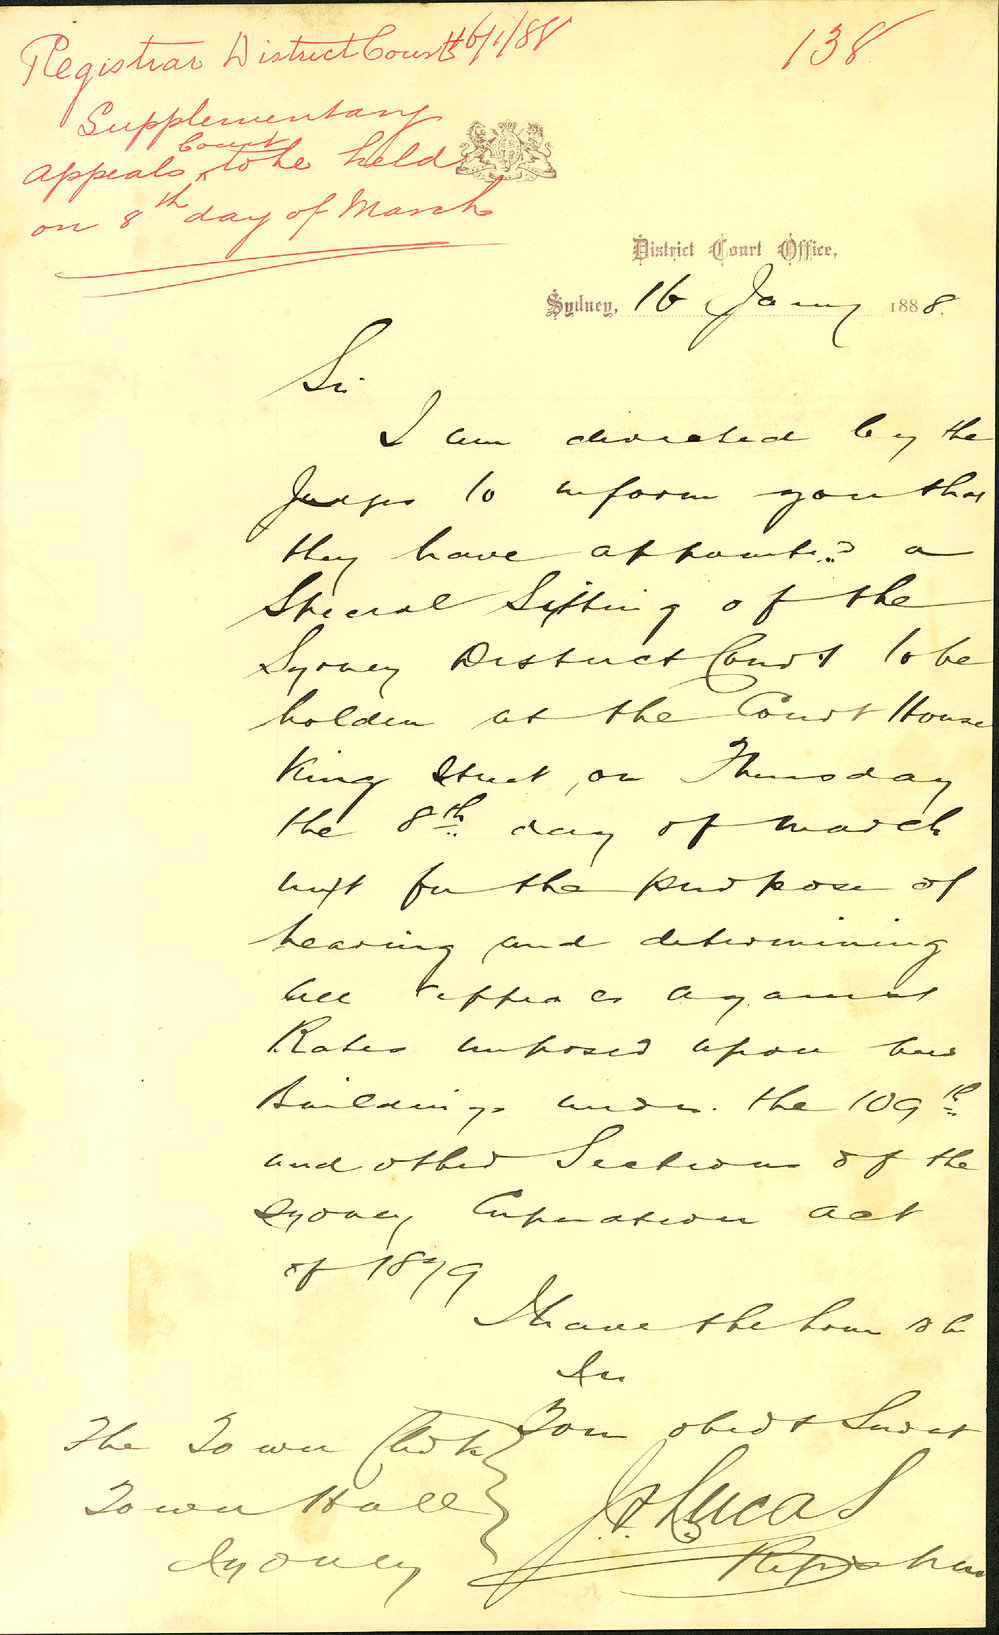 Registrar District Courts 16/1/88
138
Supplementary
appeals Court to be held
on 8th day of March
District Court Office,
Sydney, 16 Jany 1888.
Sir
I am directed by the
Judges to inform you that
they have appointed a
Special Sitting of the
Sydney District Court to be
holden at the Court House
King Street, on Thursday
the 8th day of March
next for the purpose of
hearing and determining
all appeals against
Rates imposed upon
Buildings under the 109th
and other Sections of the
Sydney Corporation Act
of 1879
I have the honor to be
Sir
Your obedt Servat
The Town Clerk
Town Hall
Sydney
Lucas
Registrar